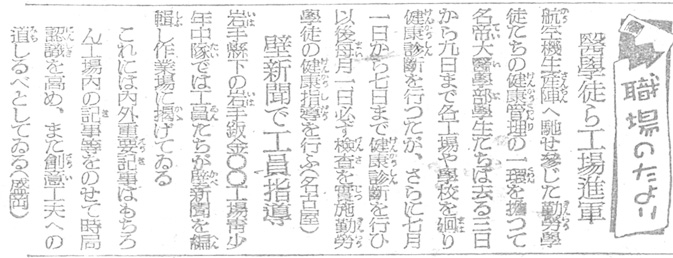 職場のだより
醫學徒ら工場進軍
航空機生産陣へ馳せ參じた勤勞學
徒たちの健康管理の一環を擔つて
名帝大醫學部學生たちは去る三日
から九日まで各工場や學校を廻り
健康診斷を行つたが、さらに七月
一日から七日まで健康診斷を行ひ
以後毎月一日必ず檢査を實施勤勞
學徒の健康指導を行ふ(名古屋)
壁新聞で工員指導
岩手縣下の岩手鈑金〇〇工場靑少
年中隊では工員たちが壁新聞を編
輯し作業場に揭げてゐる
これには内外重要記事はもちろ
ん工場内の記事等をのせて時局
認識を高め、また創意工夫への
道しるべとしてゐる(盛岡)